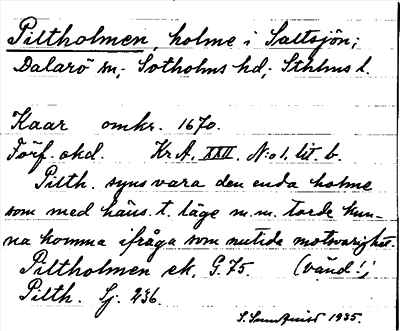 Piltholmen, holme i Saltsjön;
Dalarö sn; Sotholms hd; Sthlms l.
Kaar omkr. 1670.
Förf. okd. Kr. A. XXII. N:o 1. lit. b.
Pilth. syns vara den enda holme
som med häns. t. läge m.m. torde kun-
na komma ifråga som nutida motsvarighet.
Piltholmen ek. G. 75 (vänd!)
Pilth. Lj. 236.
S. Sundquist 1935.